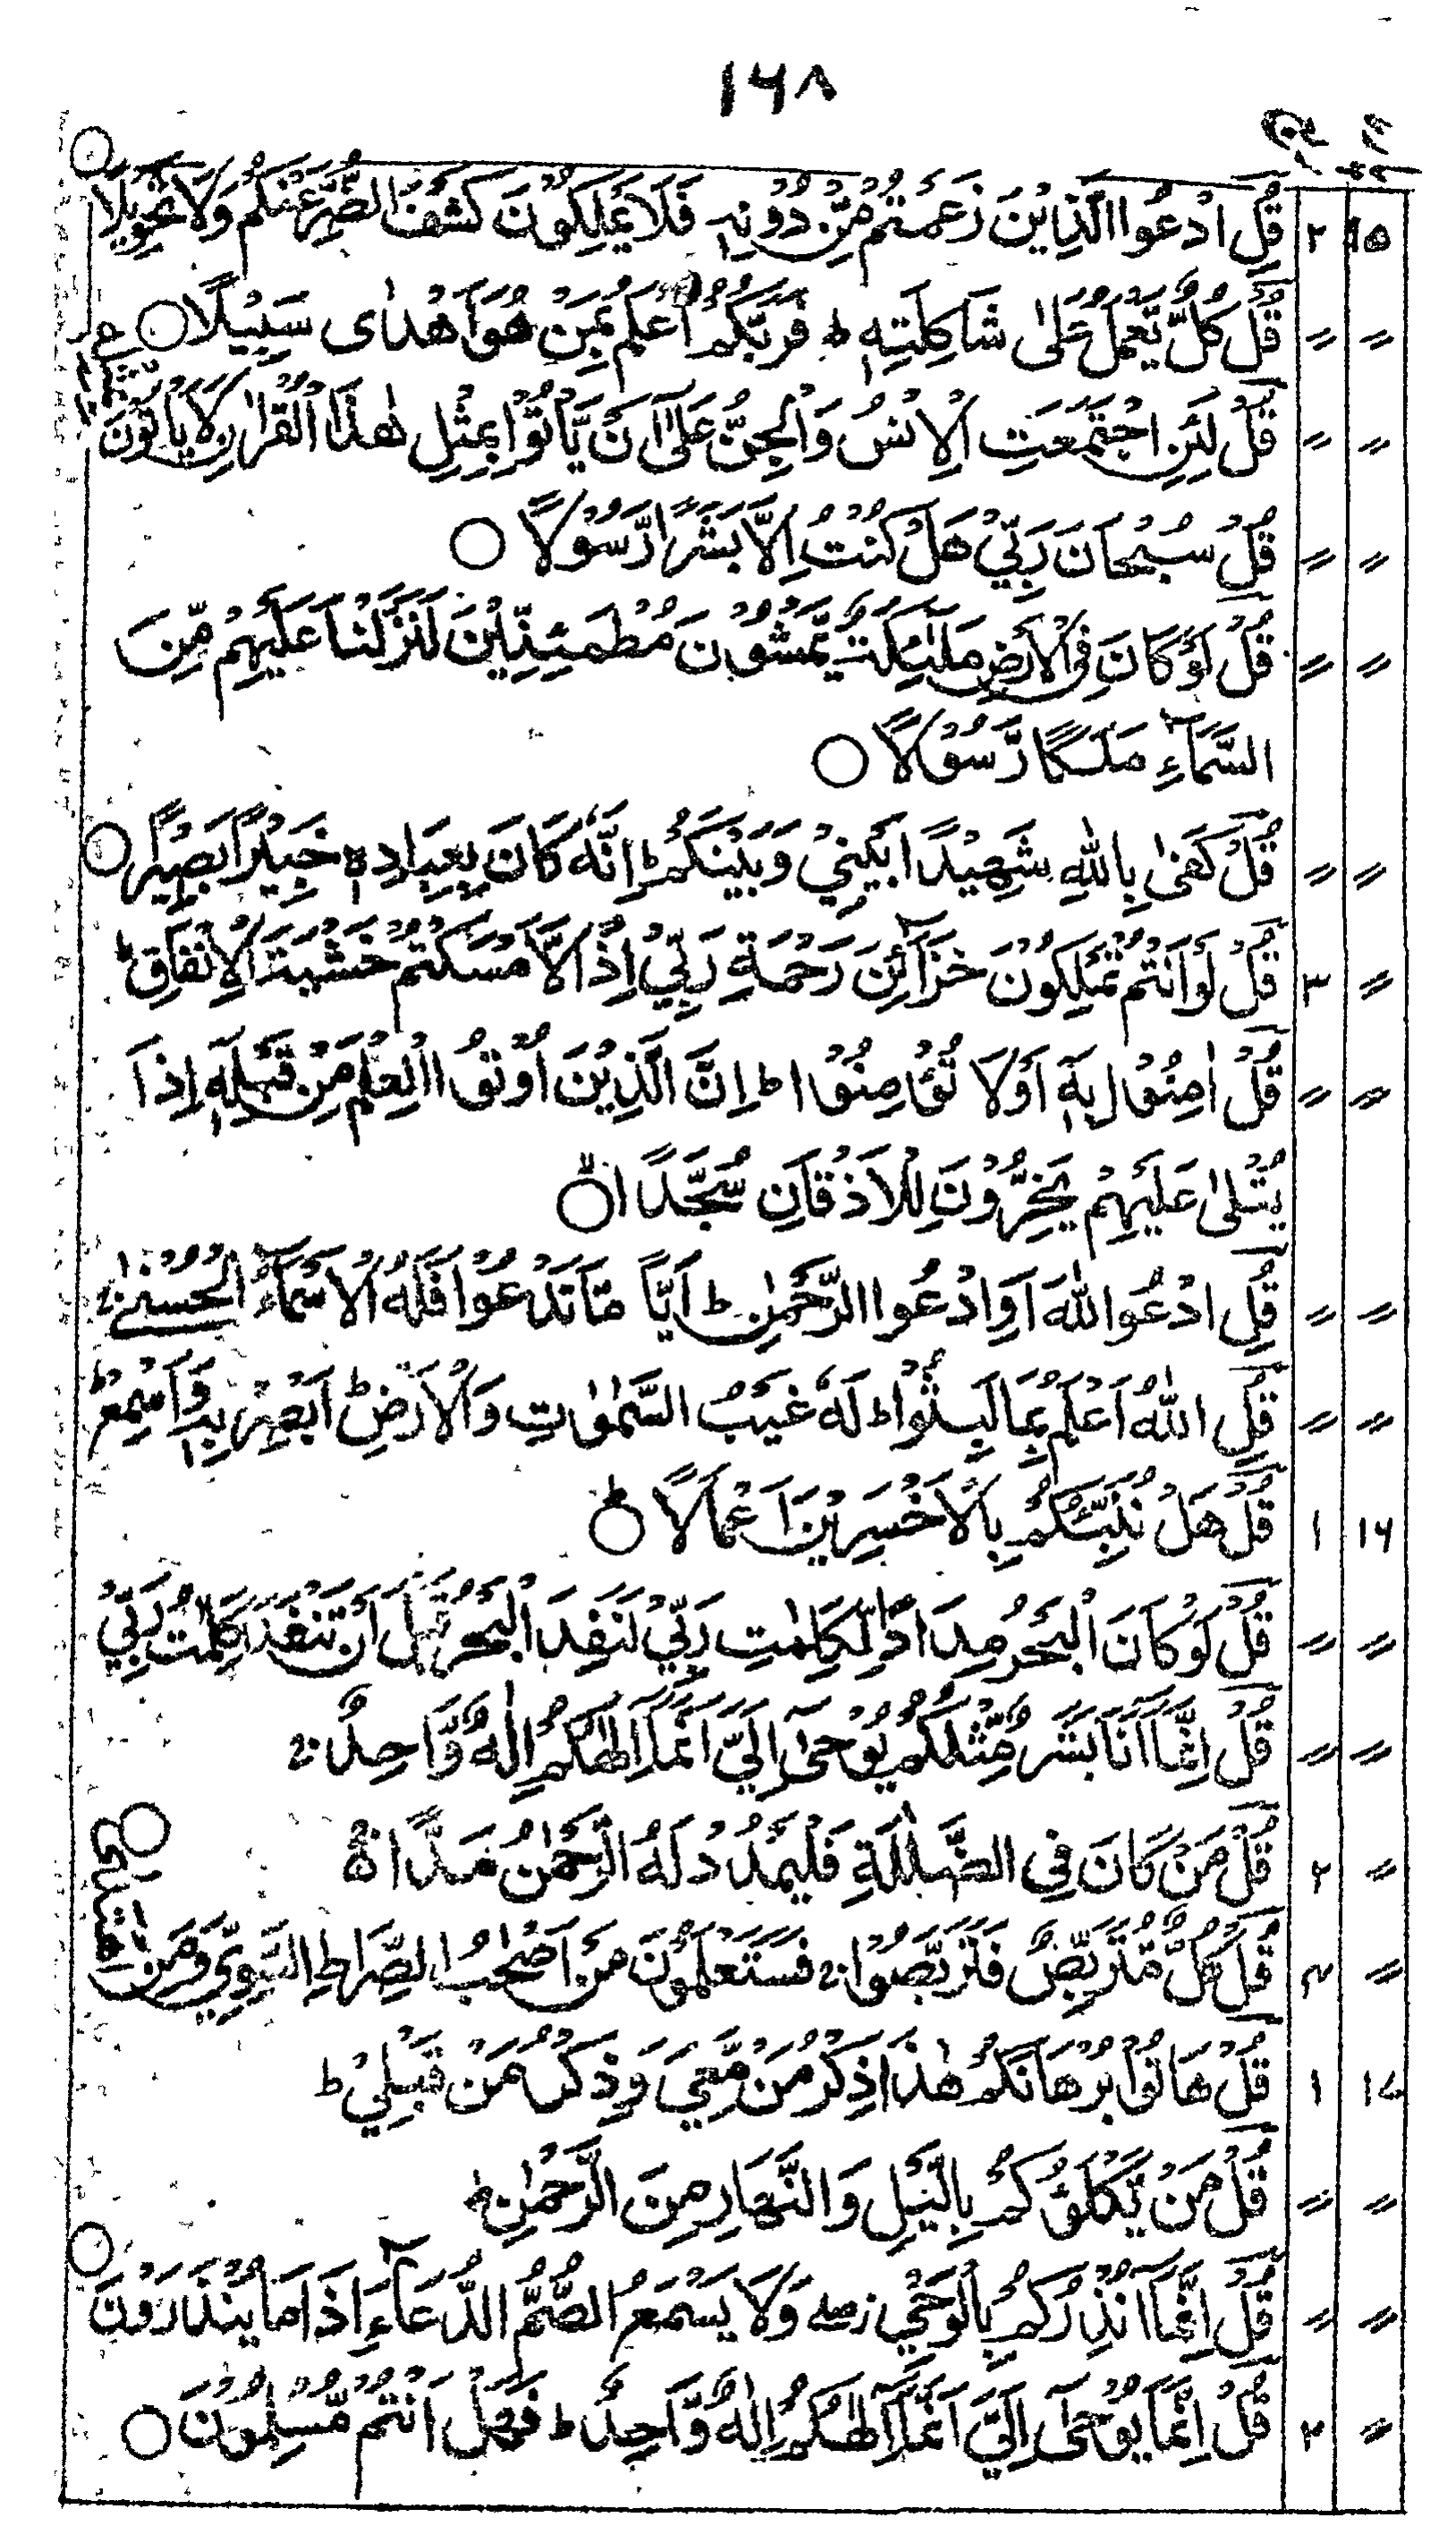 ۱۶۸
۱۵ ۲ قُلِ ادْعُوا الَّذِيْنَ زَعَمْتُمْ مِّنْ دُوْنِهٖ فَلَا يَمْلِكُوْنَ كَشْفَ الضُّرِّ عَنْكُمْ وَلَا تَحْوِيْلًا ○
〃 〃 قُلْ كُلٌّ يَّعْمَلُ عَلٰى شَاكِلَتِهٖ ط فَرَبُّكُمْ اَعْلَمُ بِمَنْ هُوَ اَهْدٰى سَبِيْلًا ○
〃 〃 قُلْ لَّئِنِ اجْتَمَعَتِ الْاِنْسُ وَالْجِنُّ عَلٰٓى اَنْ يَّاْتُوْا بِمِثْلِ هٰذَا الْقُرْاٰنِ لَا يَاْتُوْنَ
〃 〃 قُلْ سُبْحَانَ رَبِّيْ هَلْ كُنْتُ اِلَّا بَشَرًا رَّسُوْلًا ○
〃 〃 قُلْ لَّوْ كَانَ فِى الْاَرْضِ مَلٰٓئِكَةٌ يَّمْشُوْنَ مُطْمَئِنِّيْنَ لَنَزَّلْنَا عَلَيْهِمْ مِّنَ
السَّمَآءِ مَلَكًا رَّسُوْلًا ○
〃 〃 قُلْ كَفٰى بِاللّٰهِ شَهِيْدًا بَيْنِيْ وَبَيْنَكُمْ ط اِنَّهٗ كَانَ بِعِبَادِهٖ خَبِيْرًا بَصِيْرًا ○
〃 ۳ قُلْ لَّوْ اَنْتُمْ تَمْلِكُوْنَ خَزَآئِنَ رَحْمَةِ رَبِّيْ اِذًا لَّاَمْسَكْتُمْ خَشْيَةَ الْاِنْفَاقِ ط
〃 〃 قُلْ اٰمِنُوْا بِهٖٓ اَوْلَا تُؤْمِنُوْا ط اِنَّ الَّذِيْنَ اُوْتُوا الْعِلْمَ مِنْ قَبْلِهٖٓ اِذَا
يُتْلٰى عَلَيْهِمْ يَخِرُّوْنَ لِلْاَذْقَانِ سُجَّدًا ○
〃 〃 قُلِ ادْعُوا اللّٰهَ اَوِ ادْعُوا الرَّحْمٰنَ ط اَيًّا مَّا تَدْعُوْا فَلَهُ الْاَسْمَآءُ الْحُسْنٰى ج
〃 〃 قُلِ اللّٰهُ اَعْلَمُ بِمَا لَبِثُوْا ط لَهٗ غَيْبُ السَّمٰوٰتِ وَالْاَرْضِ ط اَبْصِرْ بِهٖ وَاَسْمِعْ ط
۱۶ ۱ قُلْ هَلْ نُنَبِّئُكُمْ بِالْاَخْسَرِيْنَ اَعْمَالًا ○ ط
〃 〃 قُلْ لَّوْ كَانَ الْبَحْرُ مِدَادًا لِّكَلِمٰتِ رَبِّيْ لَنَفِدَ الْبَحْرُ قَبْلَ اَنْ تَنْفَدَ كَلِمٰتُ رَبِّيْ
〃 〃 قُلْ اِنَّمَآ اَنَا بَشَرٌ مِّثْلُكُمْ يُوْحٰٓى اِلَيَّ اَنَّمَآ اِلٰهُكُمْ اِلٰهٌ وَّاحِدٌ ج
〃 ۲ قُلْ مَنْ كَانَ فِى الضَّلٰلَةِ فَلْيَمْدُدْ لَهُ الرَّحْمٰنُ مَدًّا
〃 ۳ قُلْ كُلٌّ مُّتَرَبِّصٌ فَتَرَبَّصُوْا ج فَسَتَعْلَمُوْنَ مَنْ اَصْحٰبُ الصِّرَاطِ السَّوِيِّ وَمَنِ اهْتَدٰى ○
۱۷ ۱ قُلْ هَاتُوْا بُرْهَانَكُمْ هٰذَا ذِكْرُ مَنْ مَّعِيَ وَذِكْرُ مَنْ قَبْلِيْ ط
〃 〃 قُلْ مَنْ يَّكْلَؤُكُمْ بِالَّيْلِ وَالنَّهَارِ مِنَ الرَّحْمٰنِ ط
〃 〃 قُلْ اِنَّمَآ اُنْذِرُكُمْ بِالْوَحْيِ زصلے وَلَا يَسْمَعُ الصُّمُّ الدُّعَآءَ اِذَا مَا يُنْذَرُوْنَ ○
〃 ۲ قُلْ اِنَّمَا يُوْحٰٓى اِلَيَّ اَنَّمَآ اِلٰهُكُمْ اِلٰهٌ وَّاحِدٌ ط فَهَلْ اَنْتُمْ مُّسْلِمُوْنَ ○